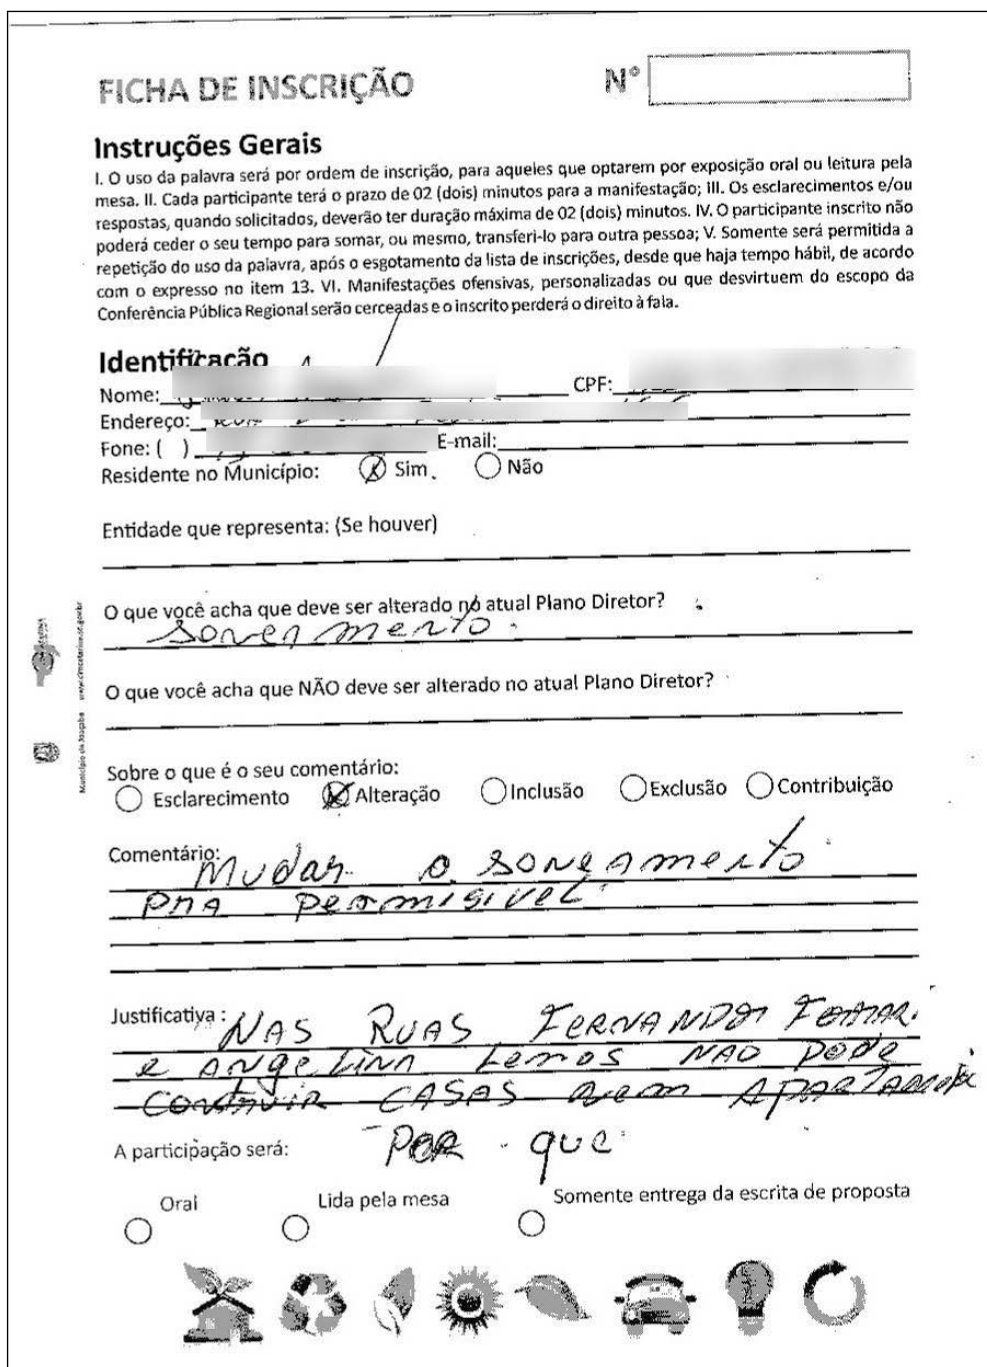 FICHA DE INSCRIÇÃO
N°
Instruções Gerais
I. O uso da palavra será por ordem de inscrição, para aqueles que optarem por exposição oral ou leitura pela
mesa. II. Cada participante terá o prazo de 02 (dois) minutos para a manifestação; III. Os esclarecimentos e/ou
respostas, quando solicitados, deverão ter duração máxima de 02 (dois) minutos. IV. O participante inscrito não
poderá ceder o seu tempo para somar, ou mesmo, transferi-lo para outra pessoa; V. Somente será permitida a
repetição do uso da palavra, após o esgotamento da lista de inscrições, desde que haja tempo hábil, de acordo
com o expresso no item 13. VI. Manifestações ofensivas, personalizadas ou que desvirtuem do escopo da
Conferência Pública Regional serão cerceadas e o inscrito perderá o direito à fala.
Identificação
Nome: CPF:
Endereço:
Fone: ( ) E-mail:
Residente no Município: Sim. Não
Entidade que representa: (Se houver)
O que você acha que deve ser alterado no atual Plano Diretor?
O que você acha que NÃO deve ser alterado no atual Plano Diretor?
Sobre o que é o seu comentário:
Esclarecimento Alteração Inclusão Exclusão Contribuição
Comentário: Mudar o
PRA PERMISIVEL
Justificativa: NAS RUAS FERNANDO
e ANGELINA Lemos NAO PODE
CONSTRUIR CASAS nem
A participação será: POR que
Oral Lida pela mesa Somente entrega da escrita de proposta
Município de Joaçaba